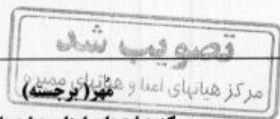 تصویب شد
مرکز هیاتهای امنا و هیاتهای ممیزه
مُهر( برجسته)